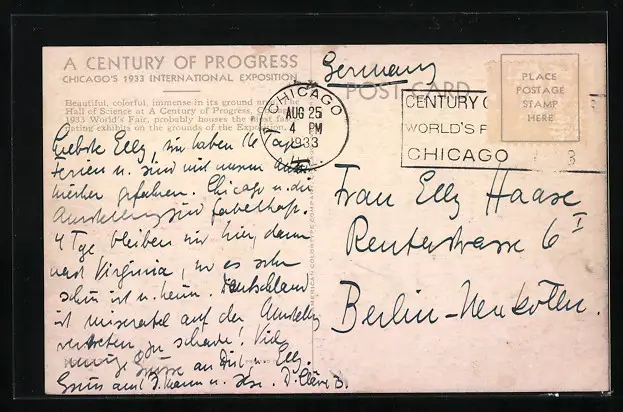 A CENTURY OF PROGRESS
CHICAGO'S 1933 INTERNATIONAL EXPOSITION
Beautiful, colorful, immense in its ground area, the
Hall of Science at A Century of Progress, Chicago's
1933 World's Fair, probably houses the most fasci-
nating exhibits on the grounds of the Exposition.
Liebste Elly, wir haben 14 Tage
Ferien u. sind mit unserm Auto
hierher gefahren. Chicago u. die
Ausstellung sind fabelhaft.
4 Tge bleiben wir hier, dann
nach Virginia, wo es sehr
schön ist u. heim. Deutschland
ist miserabel auf der Ausstellg
vertreten, zu schade! Viele
innige Grüsse an Dich Elly.
Gruss auch
Germany
POST CARD
CHICAGO
AUG 25
4 PM
1933
CENTURY O
WORLD'S F
CHICAGO 3
PLACE
POSTAGE
STAMP
HERE
Frau Elly Haase
Reuterstrasse 6 I
Berlin-Neukölln.